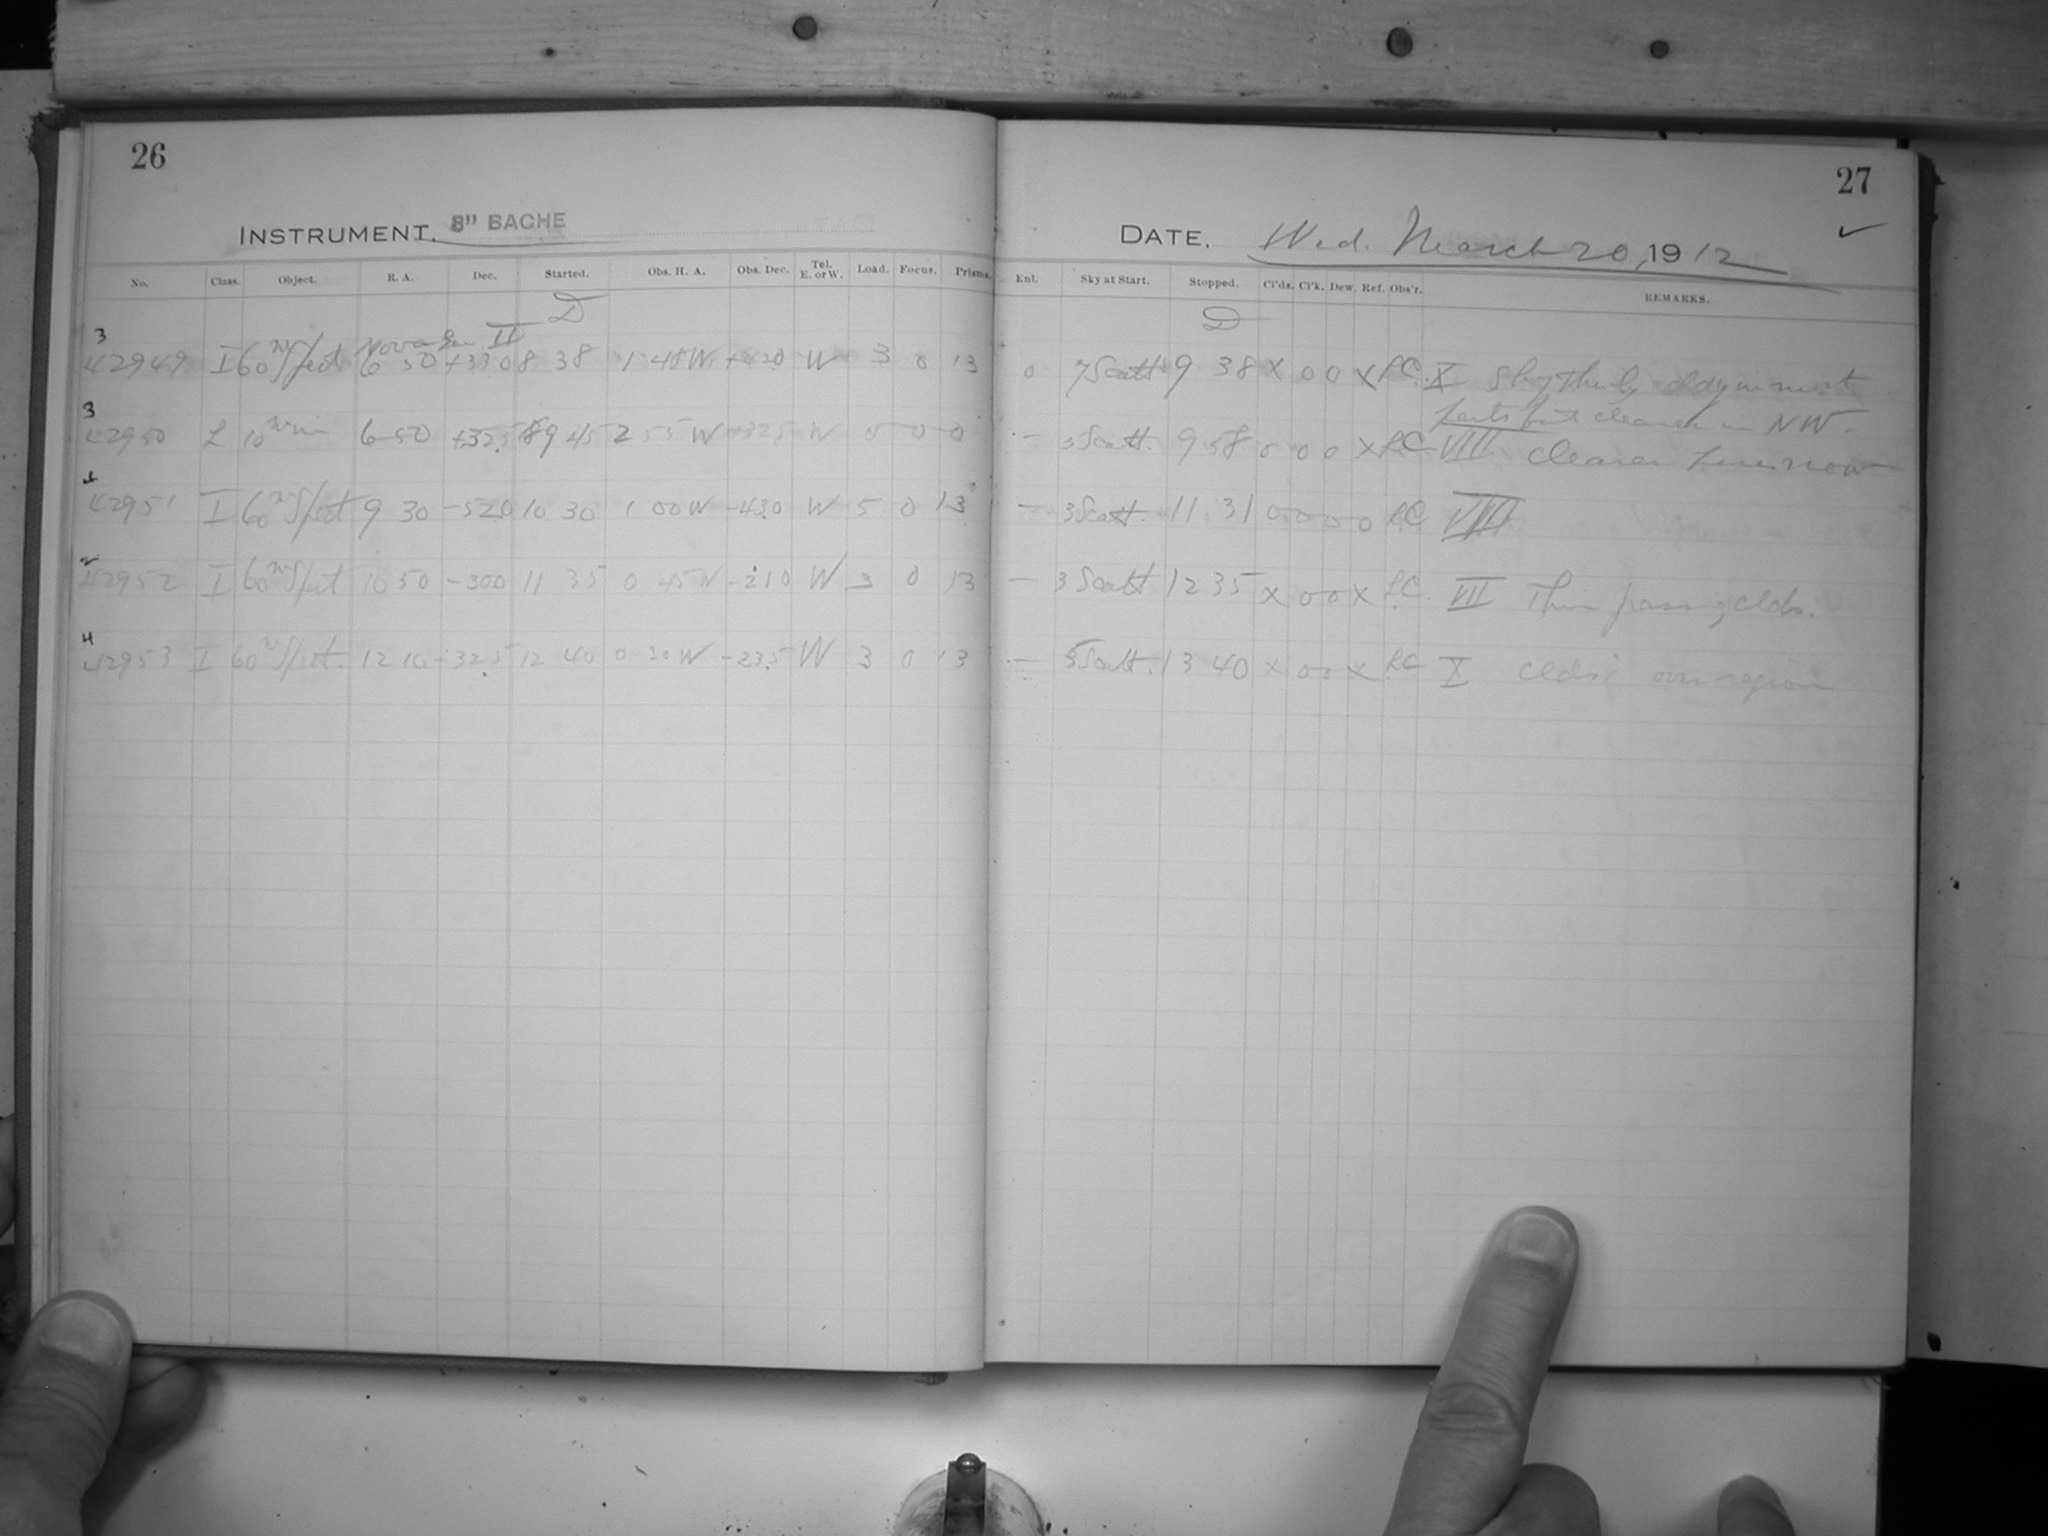 26
INSTRUMENT. 8" BACHE
No. Class. Object. R. A. Dec. Started. Obs. H. A. Obs. Dec. Tel. E. or W. Load. Focus. Prisms.
D
3 Nova Gem II
42949 I 60m Spect. 6 50 +33.0 8 38 1 48 W W 3 0 13
3
42950 L 10 min 6 50 +32.5 9 45 2 55 W +32.5 W 0 0 0
1
42951 I 60m Spect 9 30 -52.0 10 30 1 00 W -43.0 W 5 0 13
2
42952 I 60m Spect 10 50 -30.0 11 35 0 45 W -21.0 W 3 0 13
4
42953 I 60m Spect. 12 10 -32.5 12 40 0 30 W -23.5 W 3 0 13
27
DATE. Wed. March 20, 1912
Enl. Sky at Start. Stopped. Cl'ds. Cl'k. Dew. Ref. Obs'r. REMARKS.
D
0 7 Scatt 9 38 X 0 0 X X Sky cldy in most
parts but clearer in NW.
— 3 Scatt. 9 58 0 0 0 X VIII Clearer here now
— 3 Scatt. 11 31 0 0 0 0 VIII
— 3 Scatt 12 35 X 0 0 X VII Thin passing clds.
— 5 Scatt. 13 40 X 0 0 X X Clds over region